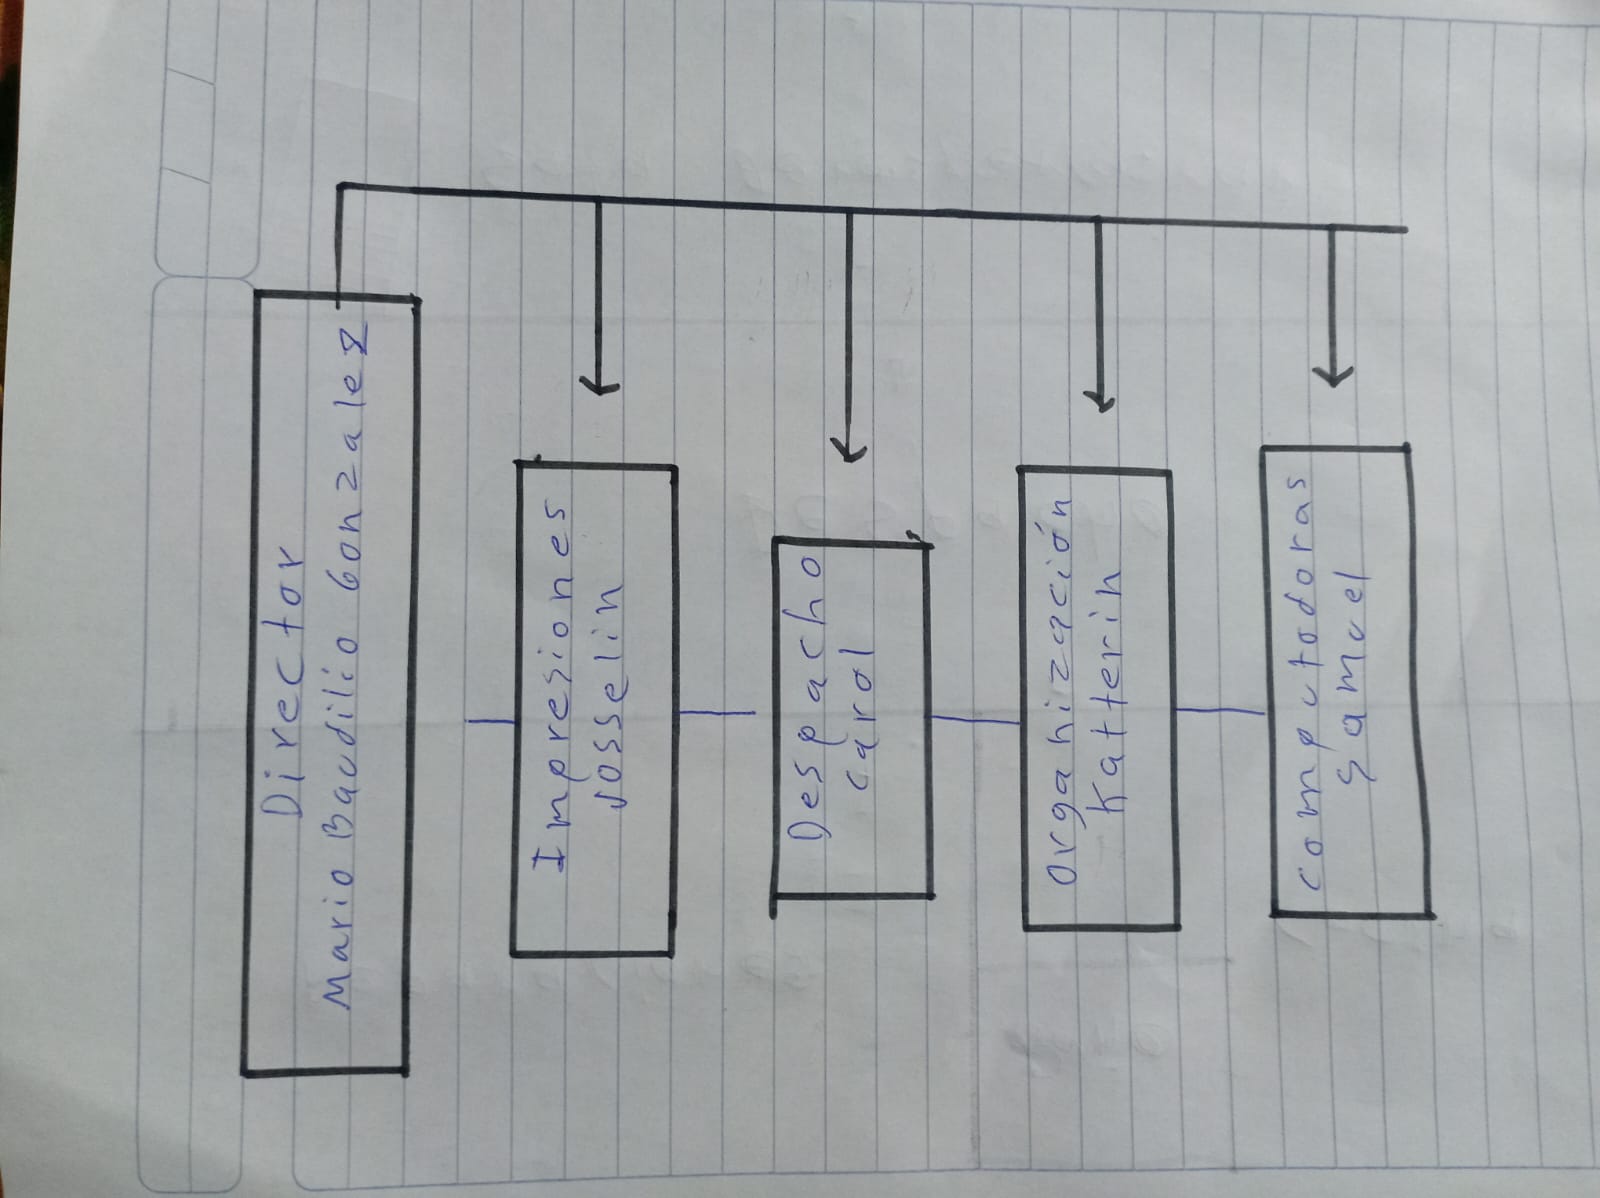 Director
Mario Baudilio Gonzalez
Impresiones
Josselin
Despacho
carol
Organización
Katterin
computodoras
Samuel